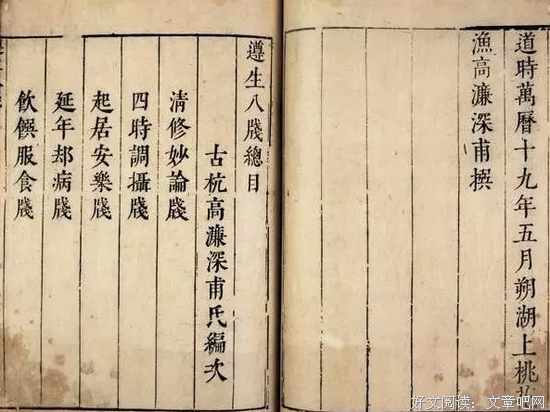 道時萬曆十九年五月朔湖上桃花
漁高濂深甫撰
遵生八牋總目
古杭高濂深甫氏編次
清修妙論牋
四時調攝牋
起居安樂牋
延年却病牋
飲饌服食牋
好文阅读：文章吧网